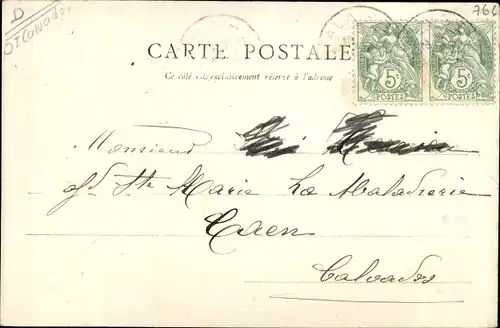 D
Calvados
766
CARTE POSTALE
Ce côté est exclusivement réservé à l'adresse
5c POSTES 5c POSTES
Monsieur
Ste Marie La Maladrerie
Caen
Calvados